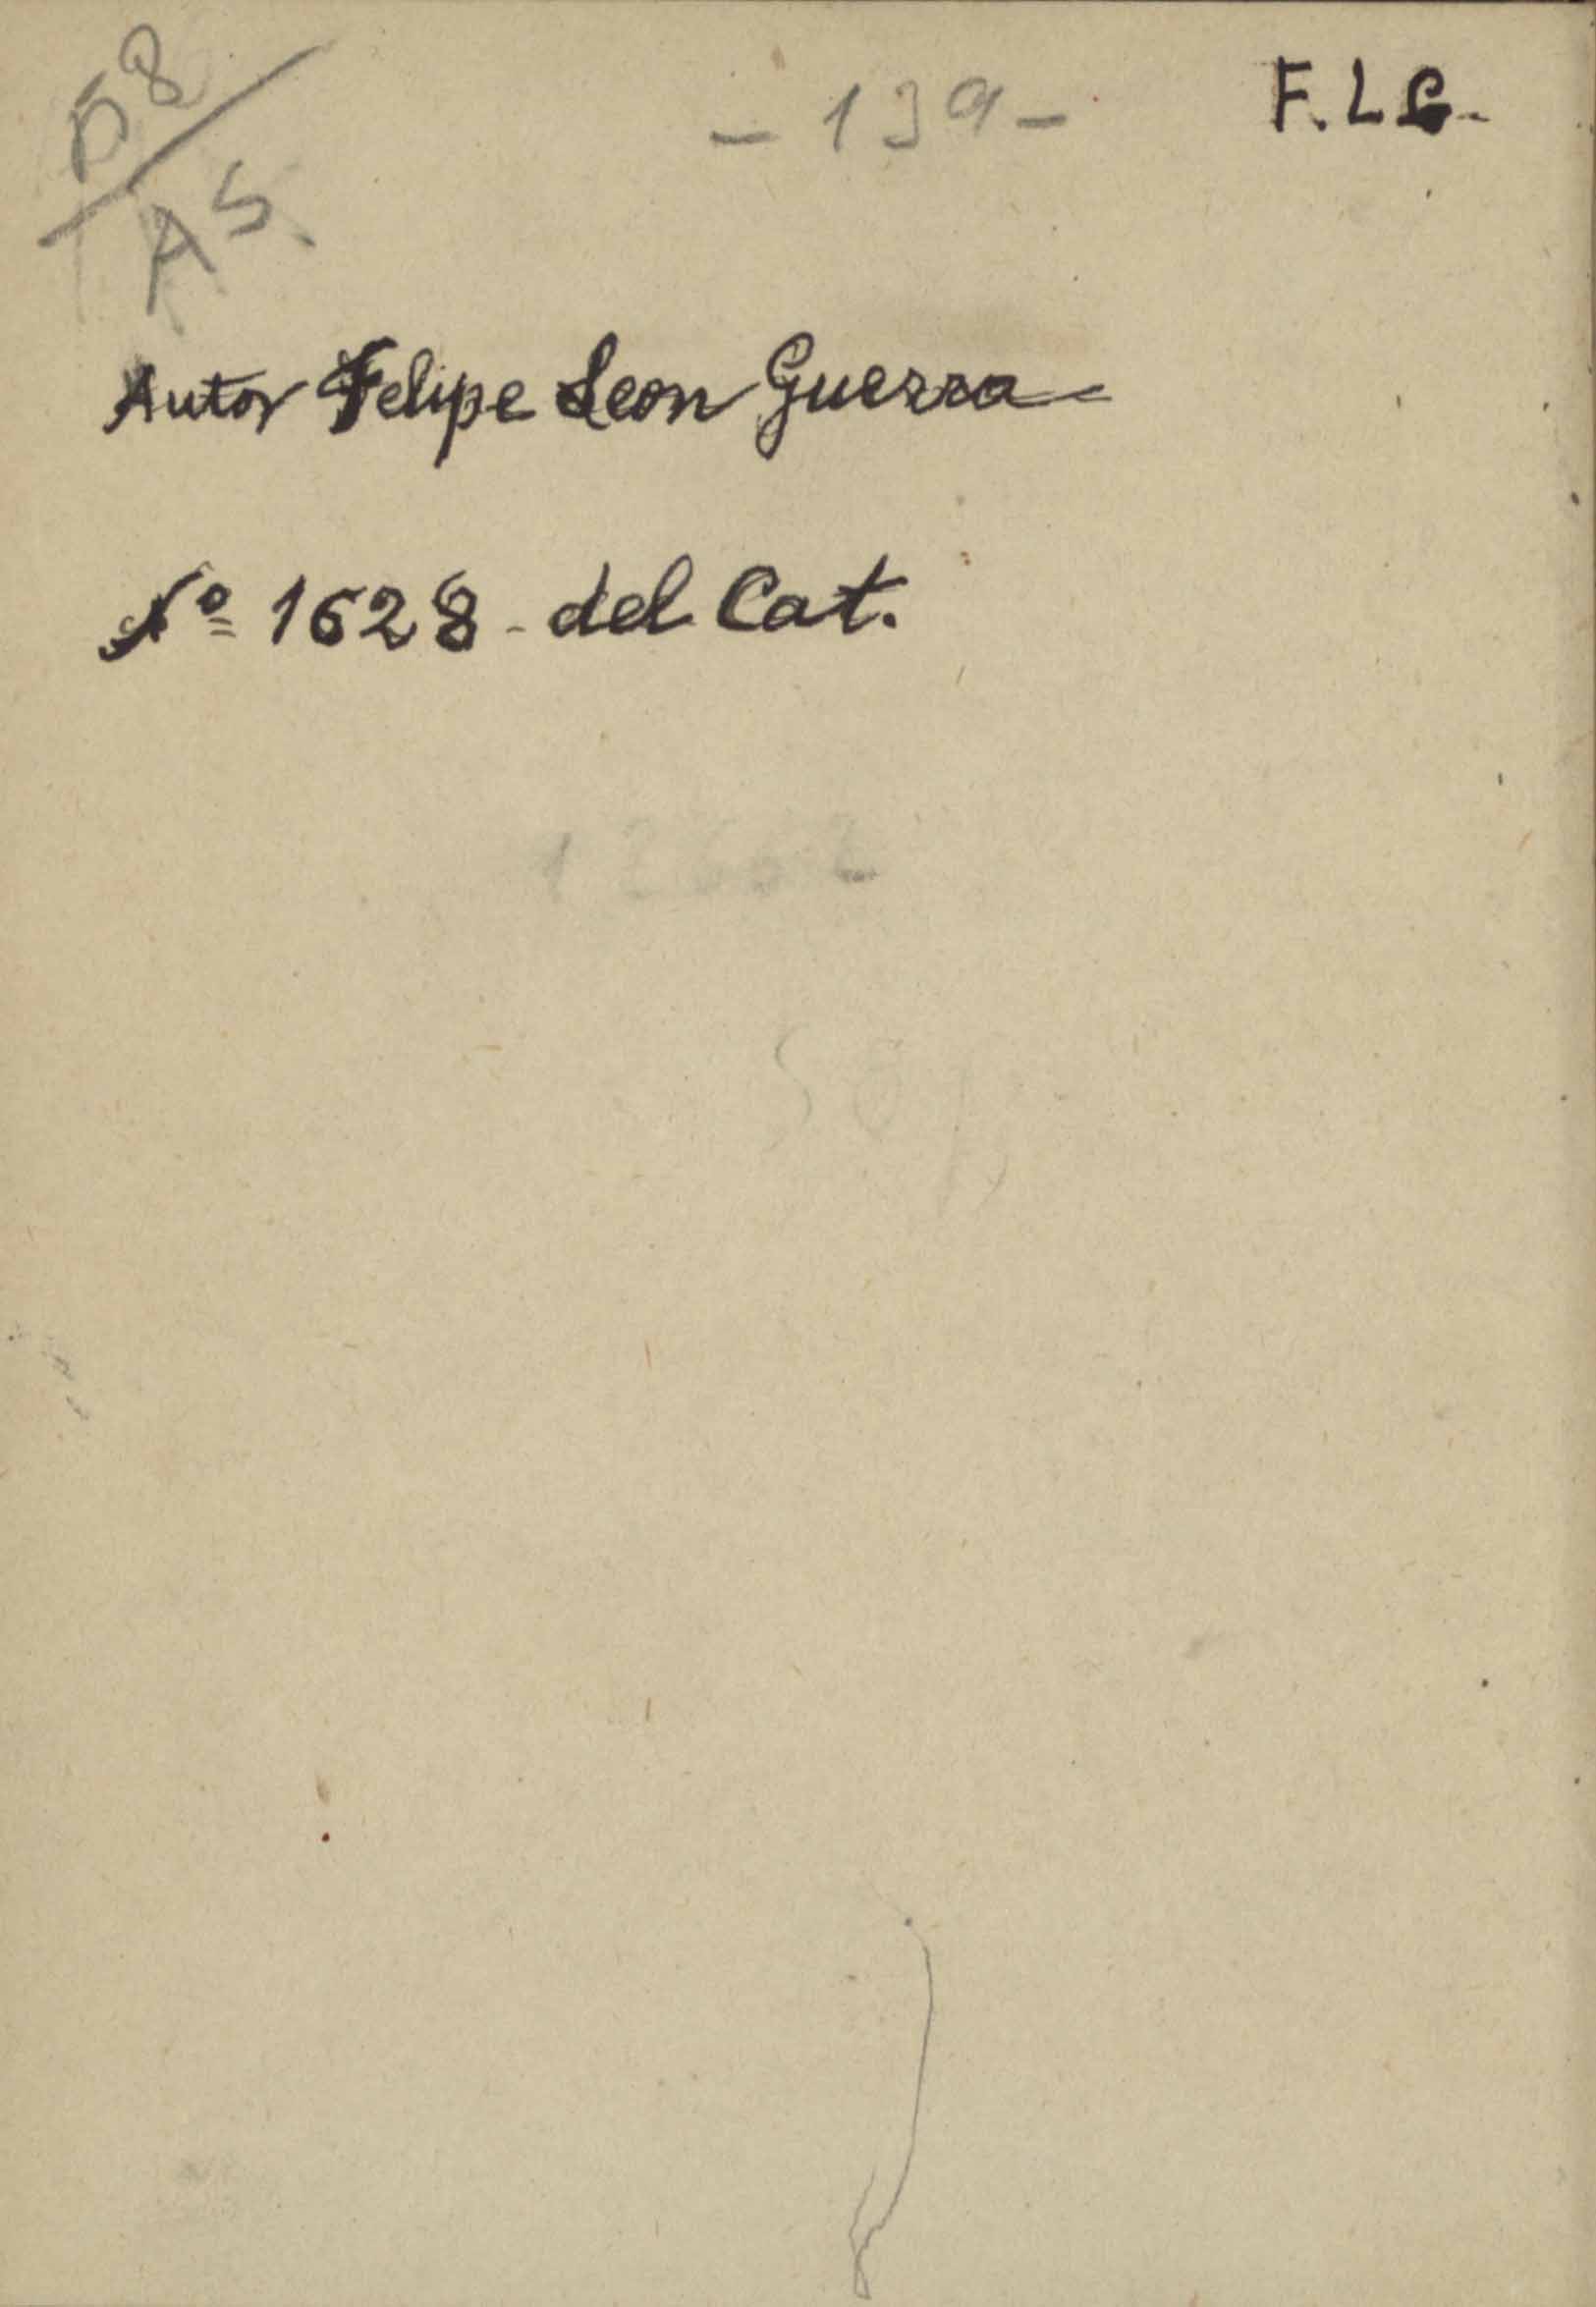 - 139 -
F. L G.
A5
Autor Felipe Leon Guerra
Nº 1628 del Cat.